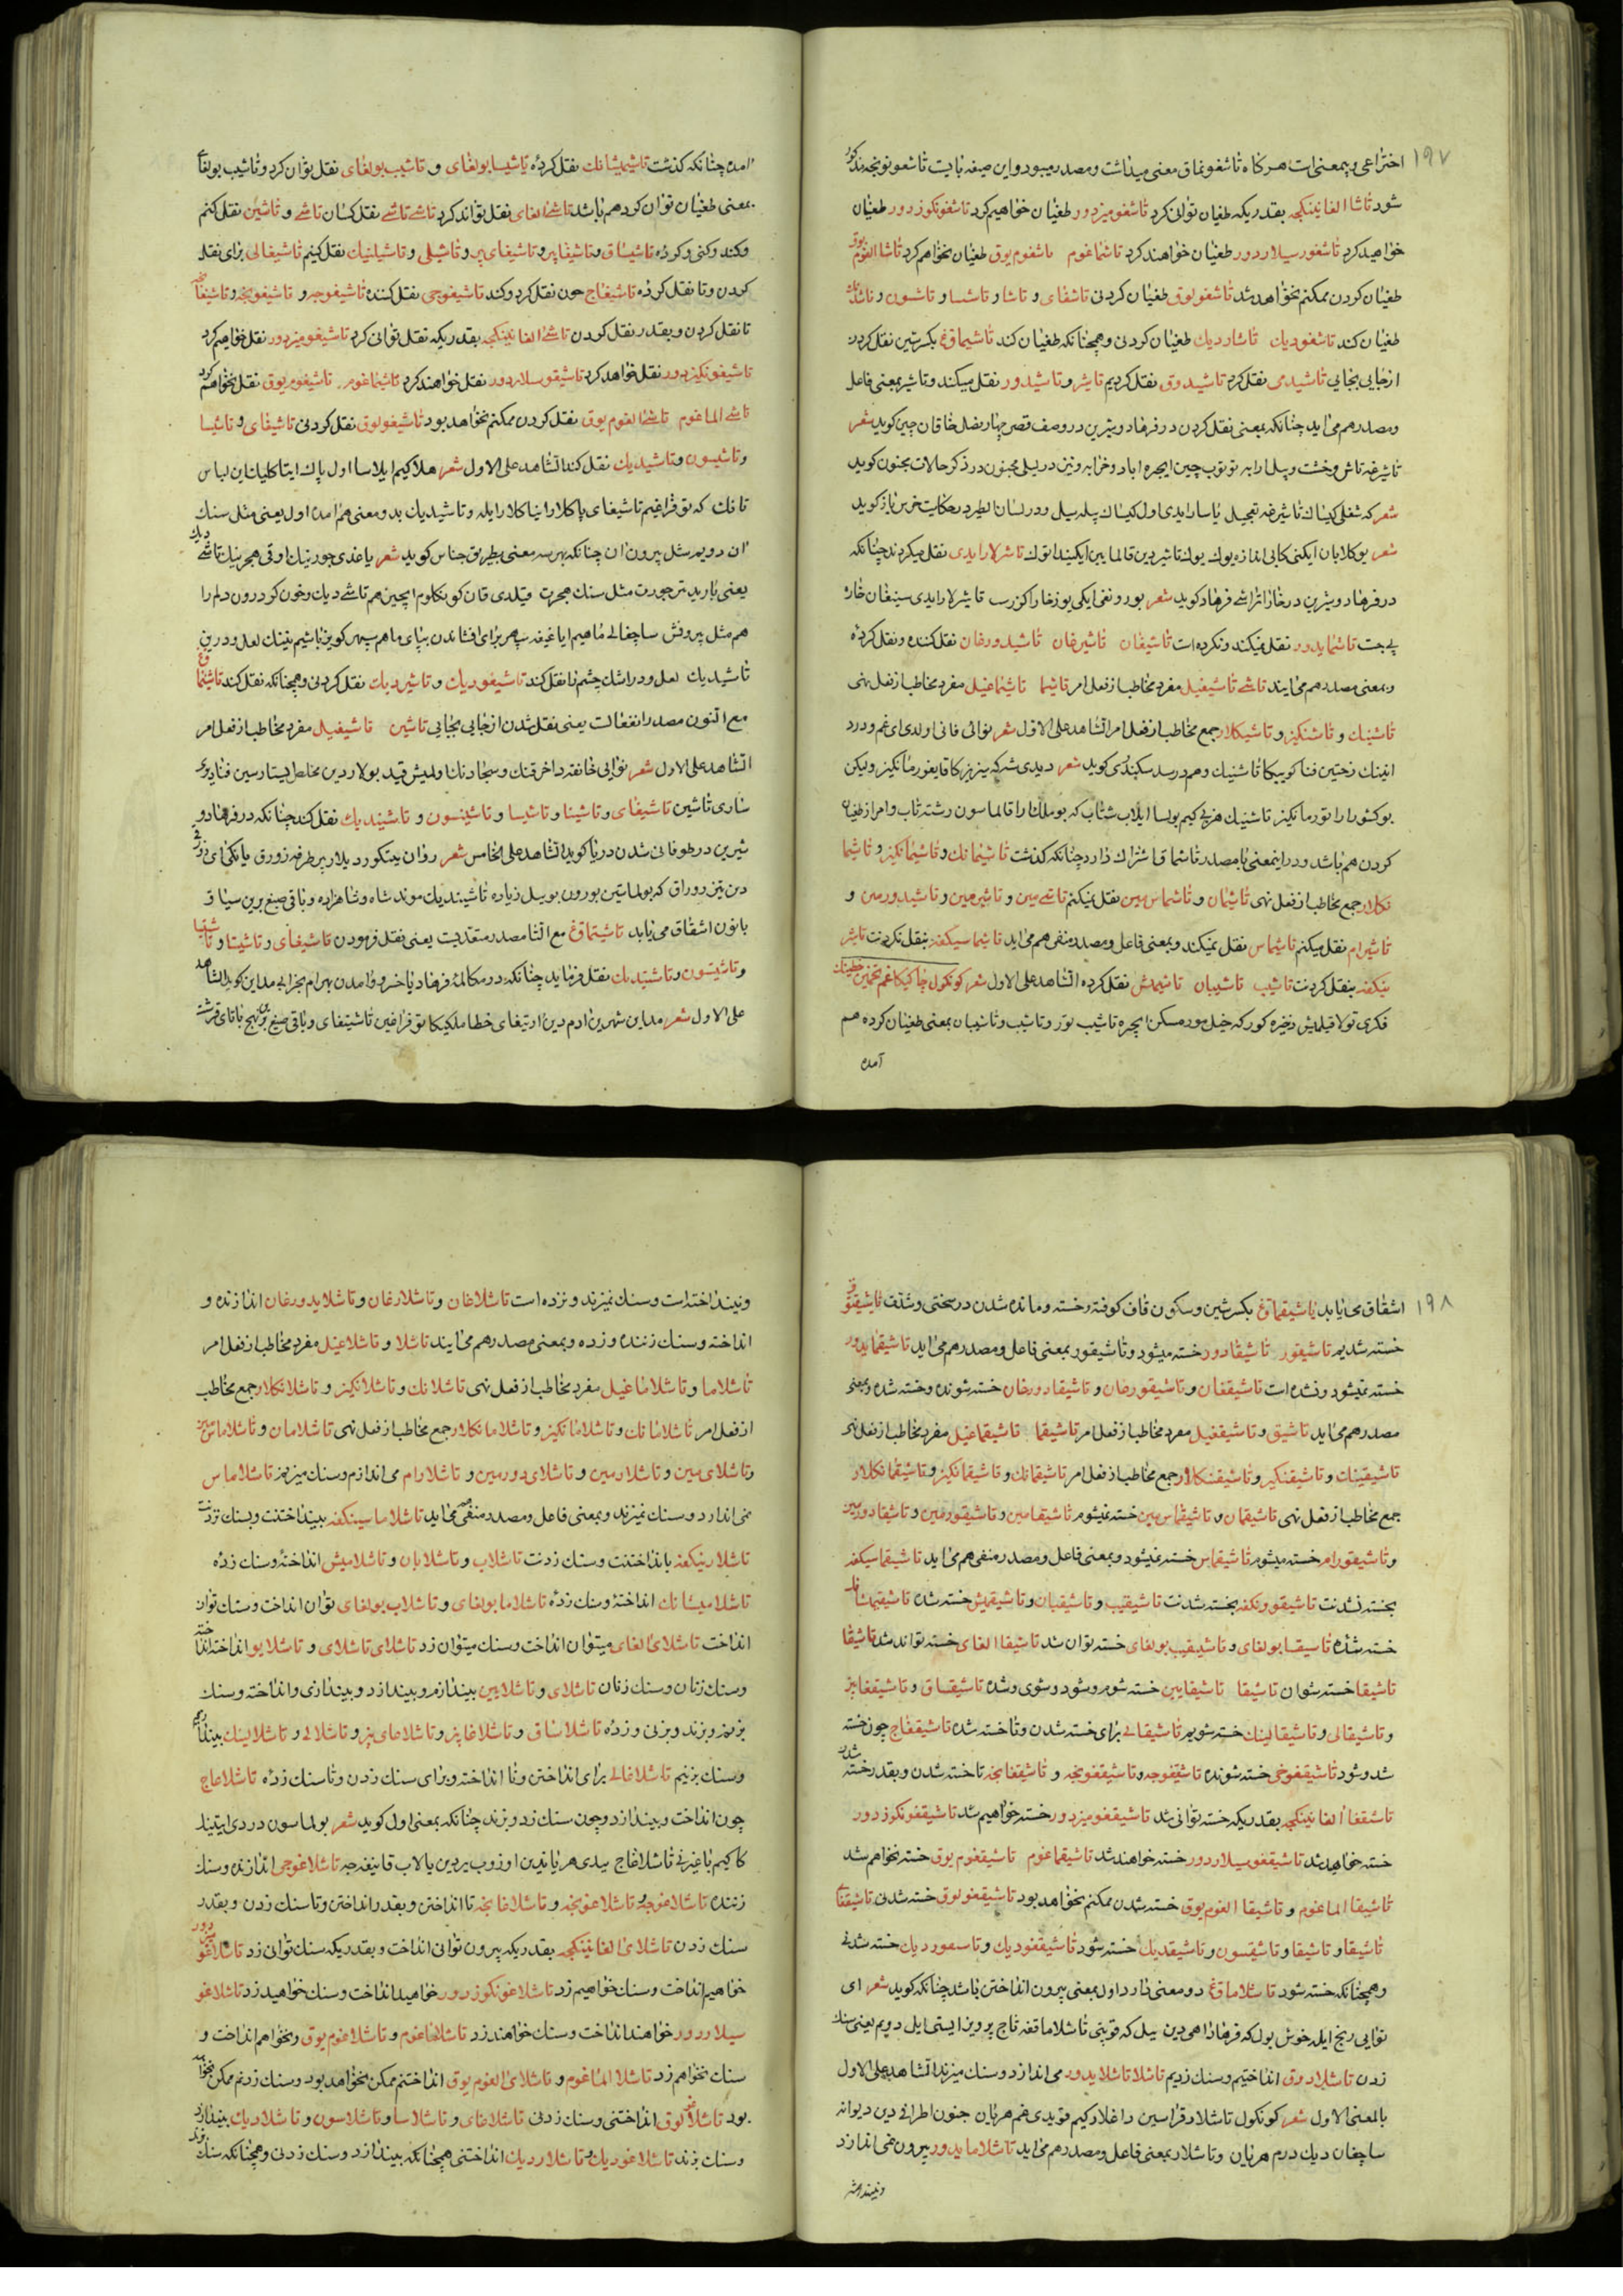 ۱۹۷
اختراعی و بیمعنی است هرگاه تاشغونماق معنی میداشت و مصدر میبود و این صیغه بایست تاشغونونجه مذکور
شود تاشا الغانینکجه بقدریکه طغیان توانی کرد تاشغومیزدور طغیان خواهیم کرد تاشغونکوزدور طغیان
خواهید کرد تاشغورسیلاردور طغیان خواهند کرد تاشماغوم تاشغوم یوق طغیان نخواهم کرد تاشا الغوم یوق
طغیان کردن ممکنم نخواهد شد تاشغولوق طغیان کردنی تاشقای و تاشا و تاشسا و تاشسون و
طغیان کند تاشغودیک تاشاردیک طغیان کردنی و همچنانکه طغیان کند تاشیماقغ بکسر شین نقل کردن
از جایی بجایی تاشیدی نقل کرد تاشیدوق نقل کردیم تاشیر و تاشیدور نقل میکند و تاشیر بمعنی فاعل
و مصدر هم می آید چنانکه بمعنی نقل کردن در فرهاد و شیرین در وصف قصر چهار فصل خاقان چین کوید شعر
تاشیرغه تاش و خشت و پیلارا به توتوب چین ایچره اباد و خرابه و نیز در لیلی مجنون در ذکر حالات مجنون کوید
شعر که شغلی کیناک تاشیرغه تعجیل یاسارایدی اول کیناک پیله پیل و در لسان الطیر در حکایت خرس باز کوید
شعر یوکلابان ایکنی کابی اندازه یوک یوک تاشیردین قالمایین ایکیندا توک تاشرلارایدی نقل میکردند چنانکه
در فرهاد و شیرین در خارا تراشی فرهاد کوید شعر بورونقی ایکی یوز خارا کن رسب تاشیرلارایدی سینغان خاره
بی جست تاشیمایدور نقل نمیکند و نکرده است تاشیغان تاشیرغان تاشیدورغان نقل کننده و نقل کرده
و بمعنی مصدر هم می آیند تاشی تاشیغیل مفرد مخاطب از فعل امر تاشیما تاشیماغیل مفرد مخاطب از فعل نهی
تاشینک و تاشنکیز و تاشیکلار جمع مخاطب از فعل امر الشاهد علی الاول شعر نوائی فانی اولدی ای غم و درد
انینک رختین فنا کوییکا تاشینک و هم در سد سکندری کوید شعر دیدی شرکه بیزیزکا قایغورمانکیز ولیکن
یوکشورارا تورمانکیز تاشینک هر نی کیم بولسا ایلاب شتاب که بو ملک ارا قالماسون رشته تاب و امر از طغیان
کردن هم باشد و در اینمعنی با مصدر تاشماق اشتراک دارد چنانکه کذشت تاشیمانک و تاشیمانکیز و تاشیما
نکلار جمع مخاطب از فعل نهی تاشیمان و تاشیماس مین نقل نمیکنم تاشی مین و تاشیرمین و تاشیدورمین و
تاشیرام نقل میکنم تاشیماس نقل نمیکند و بمعنی فاعل و مصدر منفی هم می آید تاشیماسیکفه بنقل نکردنت تاشیر
نیکفه بنقل کردنت تاشیب تاشیبان تاشیمیش نقل کرده الشاهد علی الاول شعر کونکول چاکیکا غم تخمین
فکری تولا قیلمیش ذخیره کورکه خیل مور مسکن ایچره تاشیب تور و تاشیب و تاشیبان بمعنی طغیان کرده هم
آمده
امده چنانکه کذشت تاشیمیشانک نقل کرده تاشیسا بولغای و تاشیب بولغای نقل توان کرد و تاشیب بولغای
بمعنی طغیان توان کرد هم باشد تاشی الغای نقل تواند کرد تاشی تاشی نقل کنان تاشی و تاشین نقل کنم
و کند و کنی و کرده تاشیساق و تاشیغاپر و تاشیغای پر و تاشیلی و تاشیلینک نقل کنیم تاشیغالی برای نقل
کردن و تا نقل کرده تاشیغاج چون نقل کرد و کند تاشیغوجی نقل کننده تاشیغوجه و تاشیغونجه و تاشیغانجه
تا نقل کردن و بقدر نقل کردن تاشی الغانینکجه بقدریکه نقل توانی کرد تاشیغومیزدور نقل خواهیم کرد
تاشیغونکیزدور نقل خواهد کرد تاشیغوسیلاردور نقل خواهند کرد تاشیماغوم تاشیغوم یوق نقل نخواهم کرد
تاشی الماغوم تاشی الغوم یوق نقل کردن ممکنم نخواهد بود تاشیغولوق نقل کردنی تاشیغای و تاشیسا
و تاشیسون و تاشیدیک نقل کند الشاهد علی الاول شعر هلاکیم ایلاسا اول پاک ایتاکلیک نینک لباس
تانک که توفراغیم تاشیغای پاکلارانیا کلارایله و تاشیدیک بدو معنی هم امده اول یعنی مثل سنک
ان دویم مثل بیرون ان چنانکه بهر سه معنی بطریق جناس کوید شعر یاغدی جورینک اوقی هجرینک تاشی دیک
یعنی بارید تیر جورت مثل سنک هجرت قیلدی قان کونکلوم ایچین هم تاشی دیک و خون کرد درون دلم را
هم مثل بیرونش ساچغالی ماهیم ایاغیغه سپهر برای افشاندن بپای ماهم سپهر کوزیاشیم نینک لعل و درین
تاشیدیک لعل و در اشک چشم را نقل کند تاشیغودیک و تاشیردیک نقل کردنی و همچنانکه نقل کند تاشینماقغ
مع النون مصدر انفعالست یعنی نقل شدن از جایی بجایی تاشین تاشینغیل مفرد مخاطب از فعل امر
الشاهد علی الاول شعر نوائی خانقه داخرقنک و سجادنک ولمیش قید بولاردین مخلص ایستارسین فنا دیری
ساری تاشین تاشیغای و تاشینا و تاشیسا و تاشینسون و تاشیندیک نقل کند چنانکه در فرهاد و
شیرین در طوفانی شدن دریا کوید الشاهد علی الخامس شعر روان یتکوردیلار پر طرفه زورق یانکی ای دور
دین تیز رو راق که بولماستین بورون بو سیل زیاده تاشیندیک موند شاه و شاهزاده و باقی صیغ برین سیاق
با نون اشتقاق می یابد تاشیتماقغ مع التا مصدر متعدیست یعنی نقل فرمودن تاشیتغای و تاشیتا و تاشیتسا
و تاشیتسون و تاشیتدیک نقل فرماید چنانکه در مکالمه فرهاد با خسرو و امدن بهرام بخرابی مداین کوید الشاهد
علی الاول شعر مداین شهرین ادم دین اریتغای خطا ملکیکا توفراغین تاشیتغای و باقی صیغ برین نهج باتای قرشت
۱۹۸
اشتقاق می یابد تاشیقماقغ بکسر شین و سکون قاف کوفته و خسته و مانده شدن در سختی و شدت تاشیقتوق
خسته شدیم تاشیقور تاشیقادور خسته میشود و تاشیقور بمعنی فاعل و مصدر هم می آید تاشیقمایدور
خسته نمیشود و نشده است تاشیقغان و تاشیقورغان و تاشیقادورغان خسته شونده و خسته شده و بمعنی
مصدر هم می آید تاشیق و تاشیقغیل مفرد مخاطب از فعل امر تاشیقما تاشیقماغیل مفرد مخاطب از فعل نهی
تاشیقینک و تاشیقنکیز و تاشیقنکلار جمع مخاطب از فعل امر تاشیقمانک و تاشیقمانکیز و تاشیقمانکلار
جمع مخاطب از فعل نهی تاشیقمان و تاشیقماس مین خسته نمیشوم تاشیقامین و تاشیقورمین و تاشیقادورمین
و تاشیقورام خسته میشوم تاشیقماس خسته نمیشود و بمعنی فاعل و مصدر منفی هم می آید تاشیقماسیکفه
بخسته نشدنت تاشیقورونکفه بخسته شدنت تاشیقیب و تاشیقیبان و تاشیقمیش خسته شده تاشیقمیشانک
خسته شده تاشیقسا بولغای و تاشیقیب بولغای خسته توان شد تاشیقا الغای خسته تواند شد تاشیقا
تاشیقا خسته شوان تاشیقا تاشیقایین خسته شوم و شود و شوی و شده تاشیقساق و تاشیقغابیز
و تاشیقالی و تاشیقالینک خسته شویم تاشیقالی برای خسته شدن و تا خسته شده تاشیقغاج چون خسته
شد و شود تاشیقغوجی خسته شونده تاشیقغوجه و تاشیقغونجه و تاشیقغانجه تا خسته شدن و بقدر خسته شدن
تاشیقغا الغانینکجه بقدریکه خسته توانی شد تاشیقغومیزدور خسته خواهیم شد تاشیقغونکوزدور
خسته خواهید شد تاشیقغوسیلاردور خسته خواهند شد تاشیقماغوم تاشیقغوم یوق خسته نخواهم شد
تاشیقا الماغوم و تاشیقا الغوم یوق خسته شدن ممکنم نخواهد بود تاشیقغولوق خسته شدنی تاشیقغای
تاشیقا و تاشیقسا و تاشیقسون و تاشیقدیک خسته شود تاشیقغودیک و تاشیقوردیک خسته شدنی
و همچنانکه خسته شود تاشلاماقغ دو معنی دارد اول بمعنی بیرون انداختن باشد چنانکه کوید شعر ای
نوایی رنج ایله خوش بول که فرهاد اهی دین بیل که قویتی تاشلاماققه تاج پرویز ایستی ایل دویم یعنی سنک
زدن تاشلادوق انداختیم و سنک زدیم تاشلا تاشلایدور می اندازد و سنک میزند الشاهد علی الاول
بالمعنی الاول شعر کونکول تاشلادقراسین داغلار کیم قویدی هم هر یان جنون اطرافی دین دیوانه
ساچغان دیک درم هر یان و تاشلار بمعنی فاعل و مصدر هم می آید تاشلامایدور بیرون نمی اندازد
و نینداخته
و نینداخته است و سنک نمیزند و نزده است تاشلاغان و تاشلارغان و تاشلایدورغان اندازنده و
انداخته و سنک زننده و زده و بمعنی مصدر هم می آیند تاشلا و تاشلاغیل مفرد مخاطب از فعل امر
تاشلاما و تاشلاماغیل مفرد مخاطب از فعل نهی تاشلانک و تاشلانکیز و تاشلانکلار جمع مخاطب
از فعل امر تاشلامانک و تاشلامانکیز و تاشلامانکلار جمع مخاطب از فعل نهی تاشلامان و تاشلاماس مین
و تاشلای مین و تاشلارمین و تاشلای دورمین و تاشلارام می اندازم و سنک میزنم تاشلاماس
نمی اندازد و سنک نمیزند و بمعنی فاعل و مصدر منفی هم می آید تاشلاماسینکفه بنینداختنت و بسنک نزدنت
تاشلارینکفه بانداختنت و سنک زدنت تاشلاب و تاشلابان و تاشلامیش انداخته و سنک زده
تاشلامیشانک انداخته و سنک زده تاشلاسا بولغای و تاشلاب بولغای توان انداخت و سنک توان
انداخت تاشلای الغای میتوان انداخت و سنک میتوان زد تاشلای تاشلای و تاشلایو انداخته انداخته
و سنک زنان و سنک زنان تاشلای و تاشلایین بیندازم و بیندازد و بیندازی و انداخته و سنک
بزنم و بزند و بزنی و زده تاشلاساق و تاشلاغابیز و تاشلاغای بیز و تاشلالی و تاشلالینک بیندازیم
و سنک بزنیم تاشلاغالی برای انداختن و تا انداخته و برای سنک زدن و تا سنک زده تاشلاغاج
چون انداخت و بیندازد و چون سنک زد و بزند چنانکه بمعنی اول کوید شعر بولماسون دردی ایتنیک
کاکیم باغیرنی تاشلاغاج ییلدی هر یاندین اوزوب یردین یالاب قانیغه جه تاشلاغوجی اندازنده و سنک
زننده تاشلاغوجه و تاشلاغونجه و تاشلاغانجه تا انداختن و بقدر انداختن و تا سنک زدن و بقدر
سنک زدن تاشلای الغانینکجه بقدریکه بیرون توانی انداخت و بقدریکه سنک توانی زد تاشلاغومیزدور
خواهیم انداخت و سنک خواهیم زد تاشلاغونکوزدور خواهید انداخت و سنک خواهید زد تاشلاغو
سیلاردور خواهند انداخت و سنک خواهند زد تاشلاماغوم و تاشلاغوم یوق نخواهم انداخت و
سنک نخواهم زد تاشلا الماغوم و تاشلای الغوم یوق انداختنم ممکن نخواهد بود و سنک زدنم ممکن نخواهد
بود تاشلاغولوق انداختنی و سنک زدنی تاشلاغای و تاشلاسا و تاشلاسون و تاشلادیک بیندازد
و سنک بزند تاشلاغودیک و تاشلاردیک انداختنی همچنانکه بیندازد و سنک زدنی و همچنانکه سنک زند